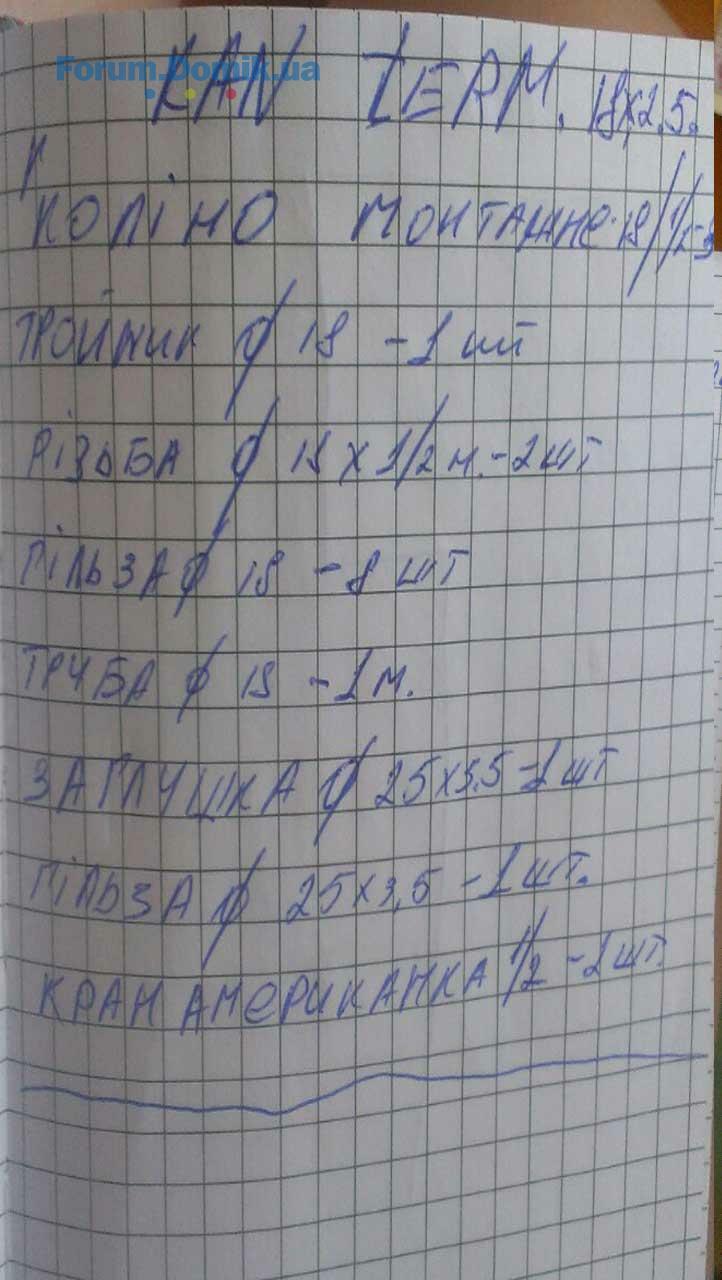 Forum.Domik.ua
KAN TERM. 18x2,5.
К
КОЛІНО МОНТАЖНЕ 18/1/2-3
ТРОЙНИК ф 18 - 1 шт
РІЗЬБА ф 18 х 1/2 м. - 2 шт
ГІЛЬЗА ф 18 - 8 шт
ТРУБА ф 18 - 1 м.
ЗАГЛУШКА ф 25х3.5 - 1 шт
ГІЛЬЗА ф 25х3,5 - 1 шт.
КРАН АМЕРИКАНКА 1/2 - 2 шт.